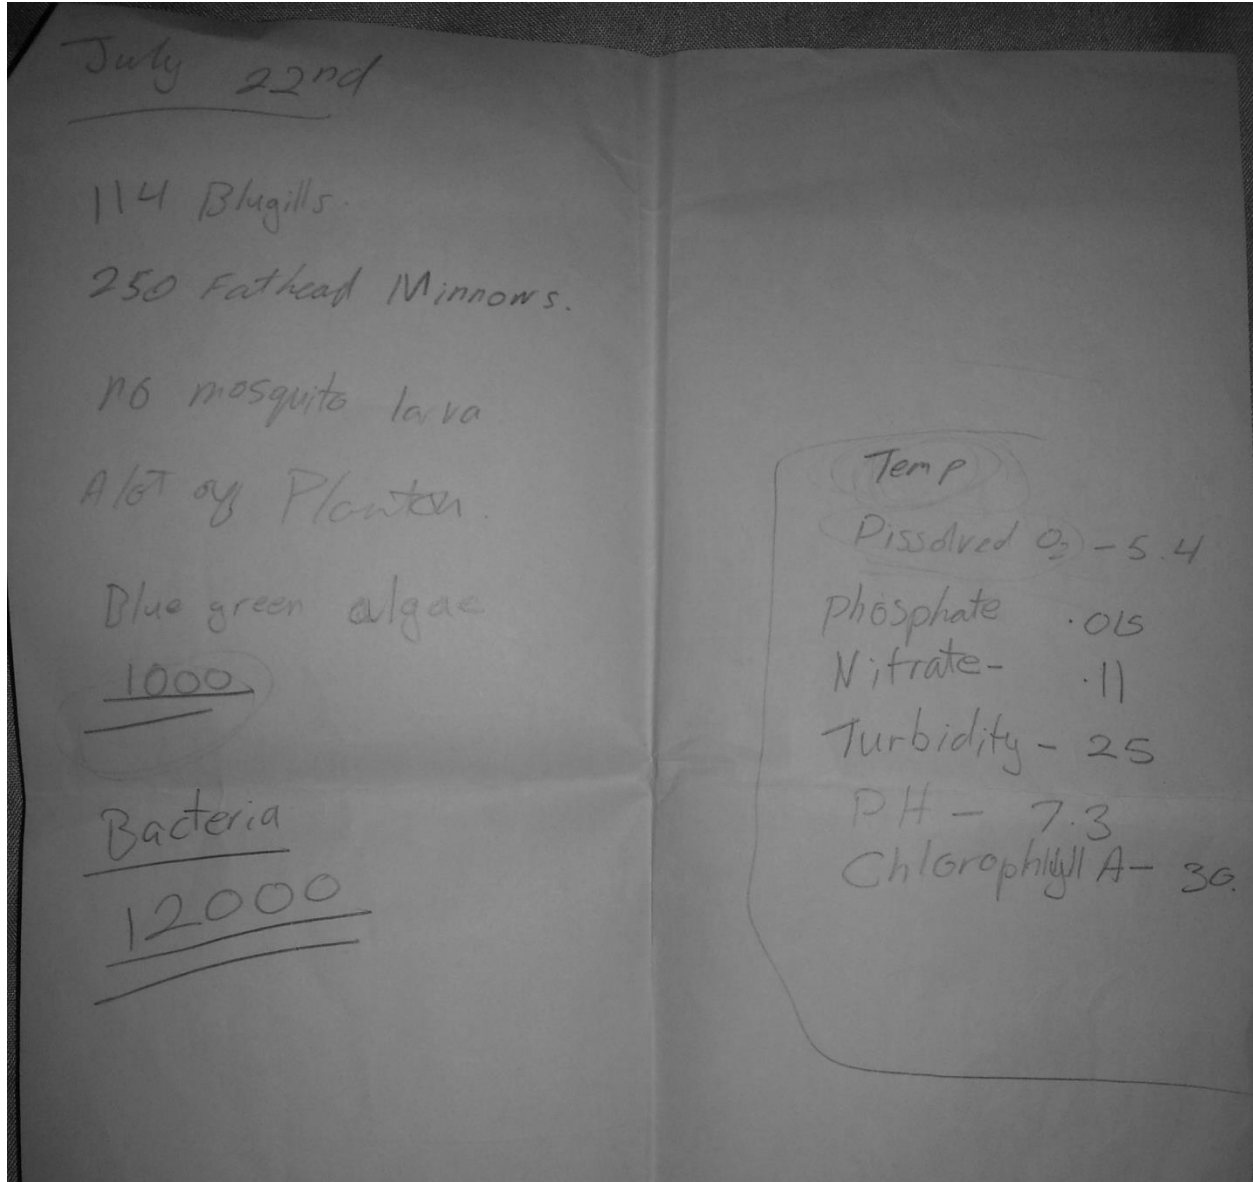 July 22nd
114 Blugills.
250 Fathead Minnows.
no mosquito larva
A lot off Plankton.
Blue green algae
1000
Bacteria
12000
Temp
Dissolved O2 - 5.4
Phosphate .015
Nitrate- .11
Turbidity - 25
PH - 7.3
Chlorophyll A- 30.